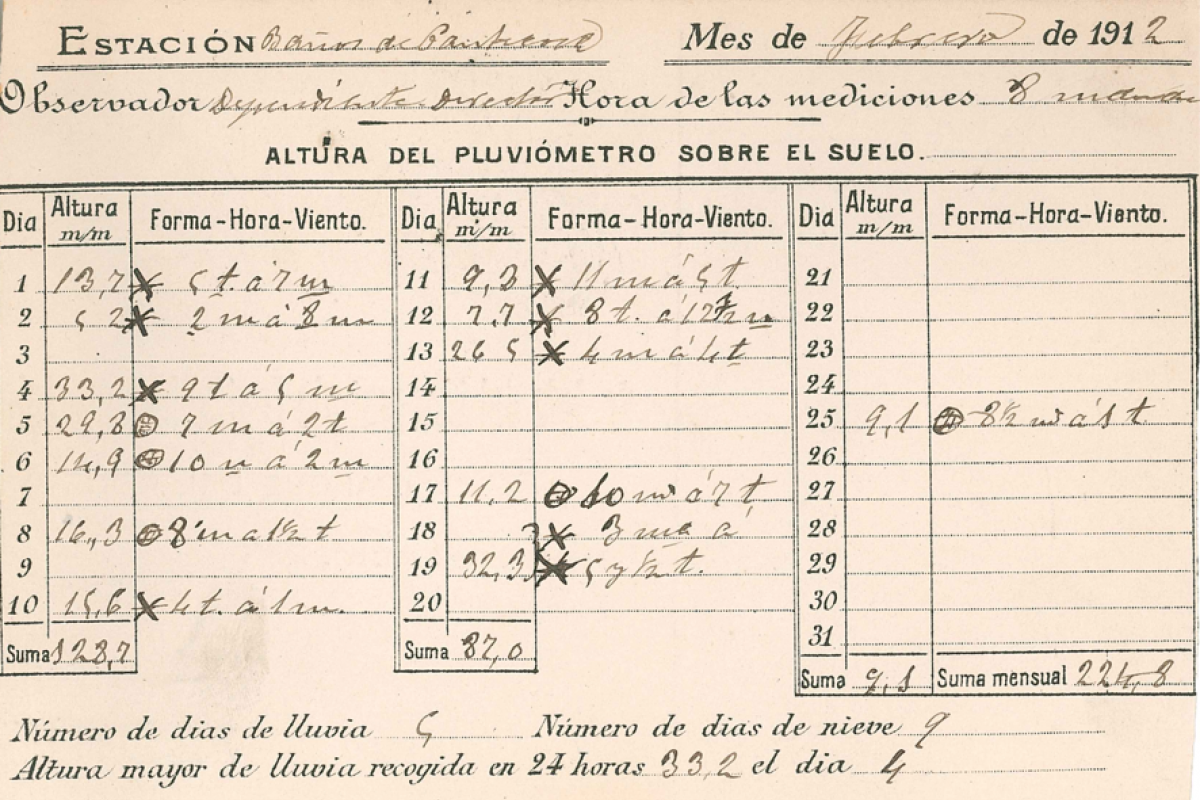 ESTACIÓN Baños de Panticosa Mes de Febrero de 1912
Observador Dependiente Director Hora de las mediciones 8 mañana
ALTURA DEL PLUVIÓMETRO SOBRE EL SUELO.
Dia Altura m/m Forma-Hora-Viento.
1 13,7 5 t á 7 m
2 5 2 2 m á 8 m
3
4 33,2 9 t á 5 m
5 29,8 7 m á 2 t
6 14,9 10 m á 2 m
7
8 16,3 8 m a 1½ t
9
10 15,6 4 t. á 1 m.
Suma 128,7
Dia Altura m/m Forma-Hora-Viento.
11 9,3 11 m á 5 t.
12 7,7 8 t. á 12½ m
13 26 5 4 m á 4 t
14
15
16
17 11,2 10 m á 7 t,
18 3 m á
19 32,3 5 y ½ t.
20
Suma 87,0
Dia Altura m/m Forma-Hora-Viento.
21
22
23
24
25 9,1 8½ m á 1 t
26
27
28
29
30
31
Suma 9,1 Suma mensual 224,8
Número de dias de lluvia 5 Número de dias de nieve 9
Altura mayor de lluvia recogida en 24 horas 33,2 el dia 4